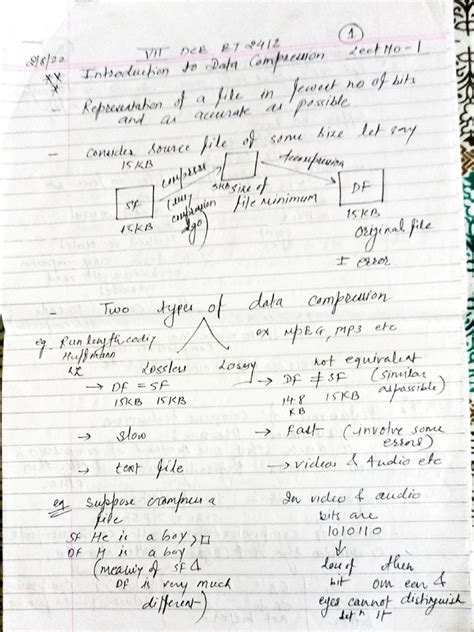 1
2/8/22 VII DCE ET 2412
Introduction to Data Compression Lect No-1
- Representation of a file in fewest no of bits
and as accurate as possible
- Consider source file of some size let say
15KB
compress decompression
SF 5KB size of DF
(any file minimum
compression
algo)
15KB 15KB
original file
I error
- Two types of data compression
eg Run length coding, ex MPEG, MP3 etc
Huffmann
LZ Lossless Lossy not equivalent
→ DF = SF → DF ≠ SF (similar
15KB 15KB 14.8 15KB as possible)
KB
→ slow → Fast (involve some
errors)
→ text file → videos & Audio etc
eg Suppose compress a In video & audio
file bits are
SF He is a boy, 1010110
DF H is a boy
(meaning of SF & loss of then
DF is very much bit our ear &
different) eyes cannot distinguish
betn it